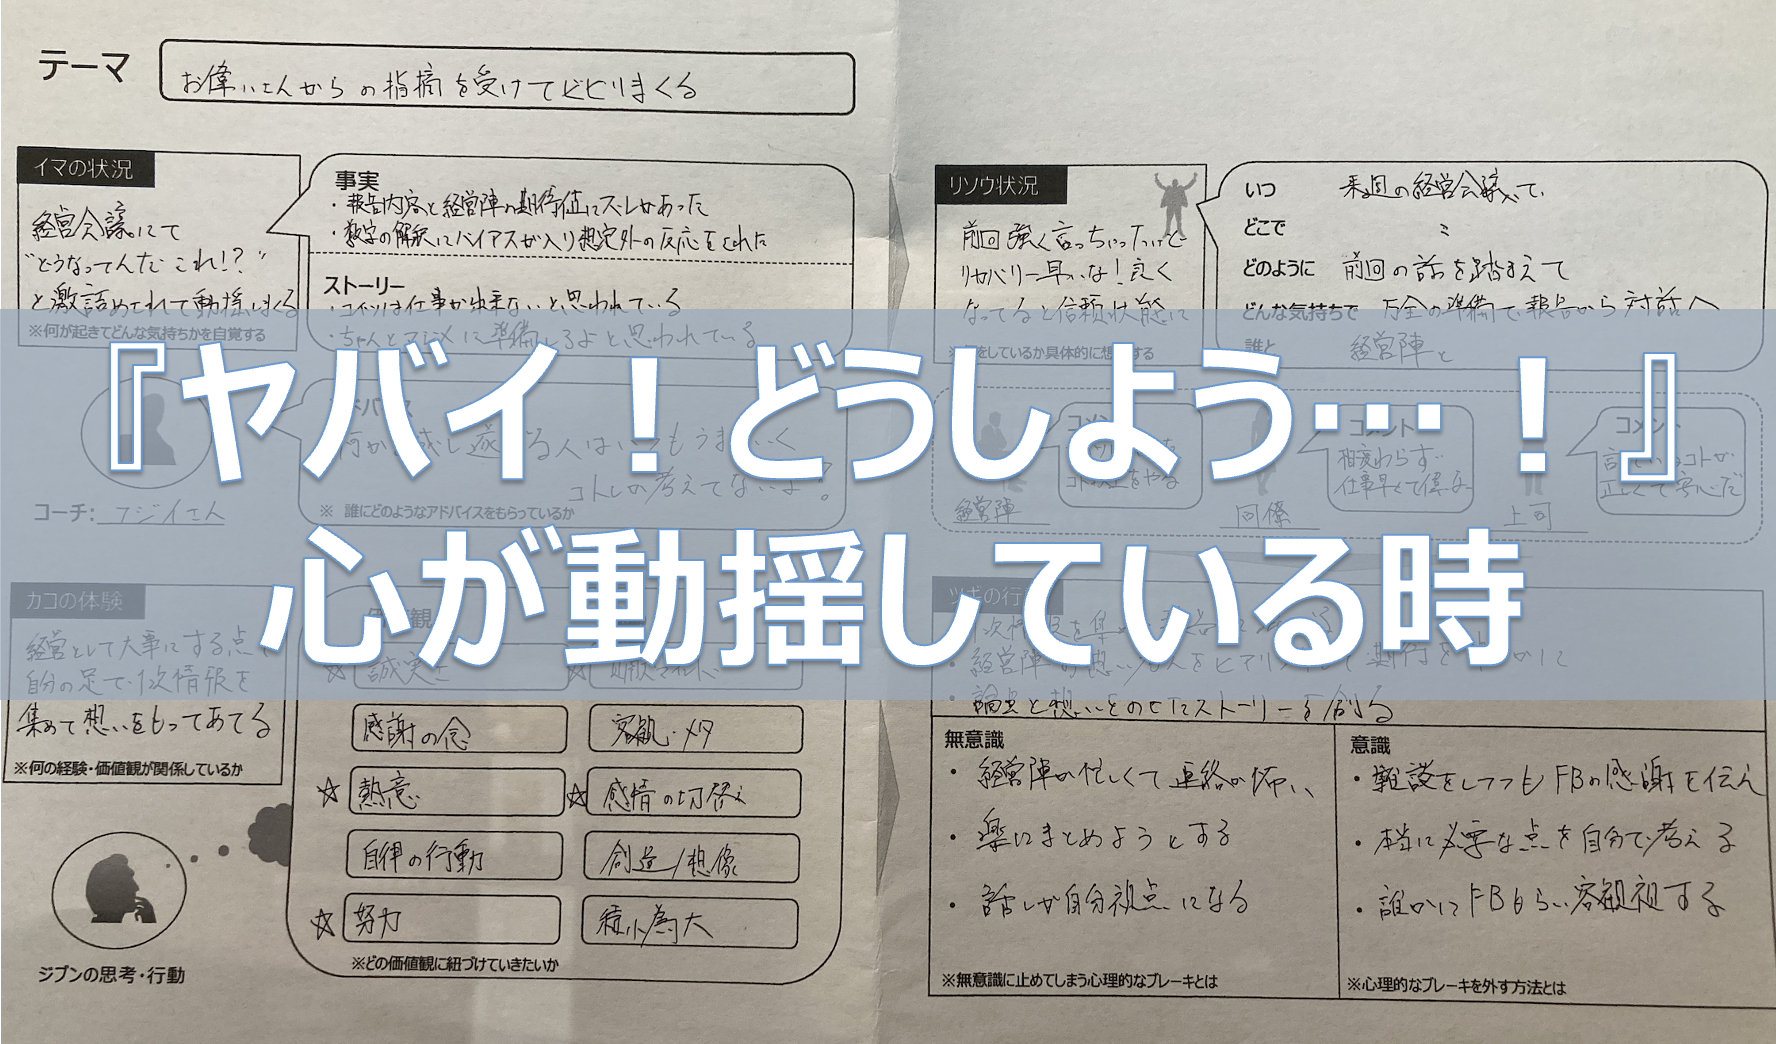 テーマ
お偉いさんからの指摘を受けてビビりまくる
イマの状況
経営会議にて
"どうなってんだ これ!?"
と激詰めされて動揺しまくる
※何が起きてどんな気持ちかを自覚する
事実
・報告内容と経営陣の期待値にズレがあった
・数字の解釈にバイアスが入り想定外の反応をされた
ストーリー
・コイツは仕事が出来ないと思われている
・ちゃんとマジメに準備しろよと思われている
リソウ状況
前回強く言っちゃったけど
リカバリー早いな!良く
なってると信頼状態に
いつ 来週の経営会議にて
どこで 〃
どのように 前回の話を踏まえて
どんな気持ちで 万全の準備で報告から対話へ
誰と 経営陣と
『ヤバイ!どうしよう…!』
心が動揺している時
何かを成し遂げる人はいつもうまくいく
コトしか考えてないよ?
※ 誰にどのようなアドバイスをもらっているか
コーチ: フジイさん
コメント
経営陣
コメント
相変わらず
仕事早くて
同僚
コメント
正しくて安心だ
上司
カコの体験
経営として大事にする点
自分の足で1次情報を
集めて想いをもってあてる
※何の経験・価値観が関係しているか
ジブンの思考・行動
価値観
☆ 誠実さ
感謝の念
客観・メタ
☆ 熱意
☆ 感情の切替え
自律の行動
創造/想像
☆ 努力
積小為大
※どの価値観に紐づけていきたいか
ツギの行
・論点と想いをのせたストーリーを創る
無意識
・経営陣が忙しくて連絡が怖い
・楽にまとめようとする
・話しが自分視点になる
※無意識に止めてしまう心理的なブレーキとは
意識
・雑談をしつつもFBの感謝を伝え
・本当に必要な点を自分で考える
・誰かにFBもらい客観視する
※心理的なブレーキを外す方法とは